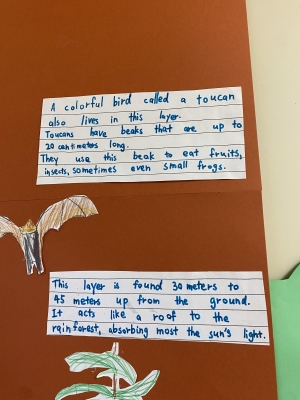 A colorful bird called a toucan
also lives in this layer.
Toucans have beaks that are up to
20 centimeters long.
They use this beak to eat fruits,
insects, sometimes even small frogs.
This layer is found 30 meters to
45 meters up from the ground.
It acts like a roof to the
rainforest, absorbing most the sun's light.